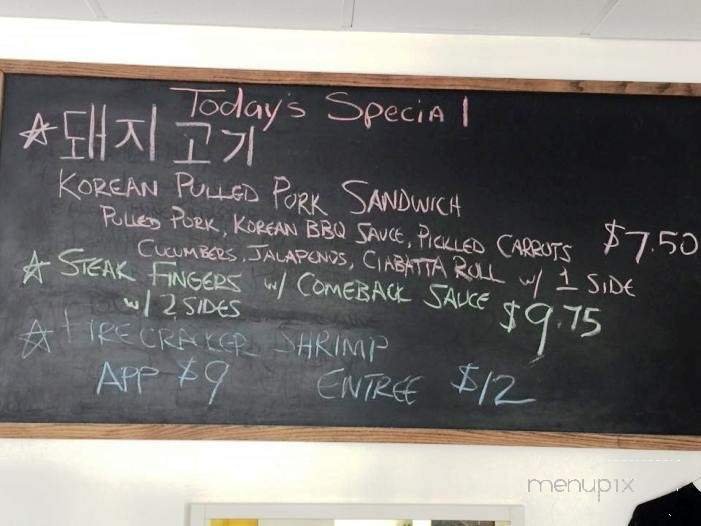 Today's Special
☆ 돼지고기
KOREAN PULLED PORK SANDWICH
PULLED PORK, KOREAN BBQ SAUCE, PICKLED CARROTS $7.50
CUCUMBERS, JALAPENOS, CIABATTA ROLL w/ 1 SIDE
☆ STEAK FINGERS w/ COMEBACK SAUCE $9.75
w/ 2 SIDES
☆ FIRECRACKER SHRIMP
APP $9 ENTREE $12
menupix